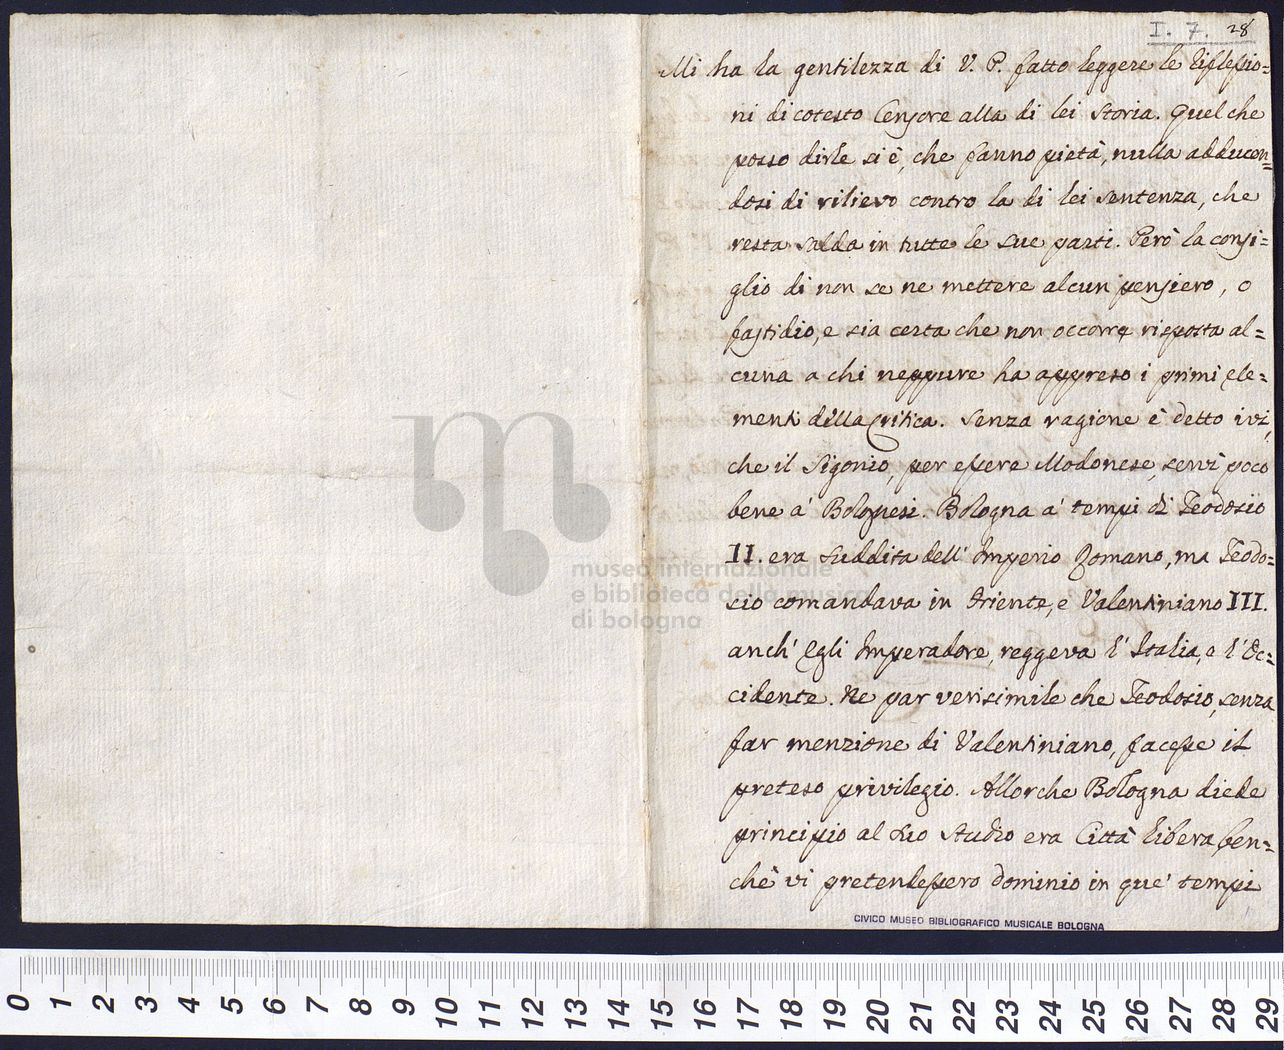 I. 7. 28
Mi ha la gentilezza di V. P. fatto leggere le riflessio=
ni di cotesto Censore alla di lei Storia. Quel che
posso dirle si è, che fanno pietà, nulla adducen=
dosi di rilievo contro la di lei sentenza, che
resta salda in tutte le sue parti. Però la consi=
glio di non se ne mettere alcun pensiero, o
fastidio, e sia certa che non occorre risposta al=
cuna a chi neppure ha appreso i primi ele=
menti della Critica. Senza ragione è detto ivi,
che il Sigonio, per essere Modonese, servì poco
bene a' Bolognesi. Bologna a' tempi di Teodosio
II. era suddita dell' Imperio Romano, ma Teodo=
sio comandava in Oriente, e Valentiniano III.
anch' Egli Imperadore, reggeva l' Italia, e l' Oc=
cidente. Ne par verisimile che Teodosio, senza
far menzione di Valentiniano, facesse il
preteso privilegio. Allorche Bologna diede
principio al suo Studio era Città libera, ben=
chè vi pretendessero dominio in que' tempi
museo internazionale
e biblioteca della musica
di bologna
CIVICO MUSEO BIBLIOGRAFICO MUSICALE BOLOGNA
0 1 2 3 4 5 6 7 8 9 10 11 12 13 14 15 16 17 18 19 20 21 22 23 24 25 26 27 28 29